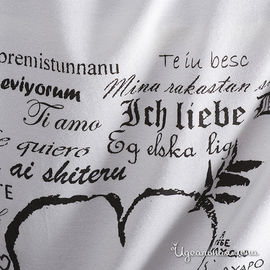 premistunnanu
Te iu besc
eviyorum
Mina rakastan s
Ti amo
Ich liebe D
e quiero
Eg elska lig
ai shiteru
TE